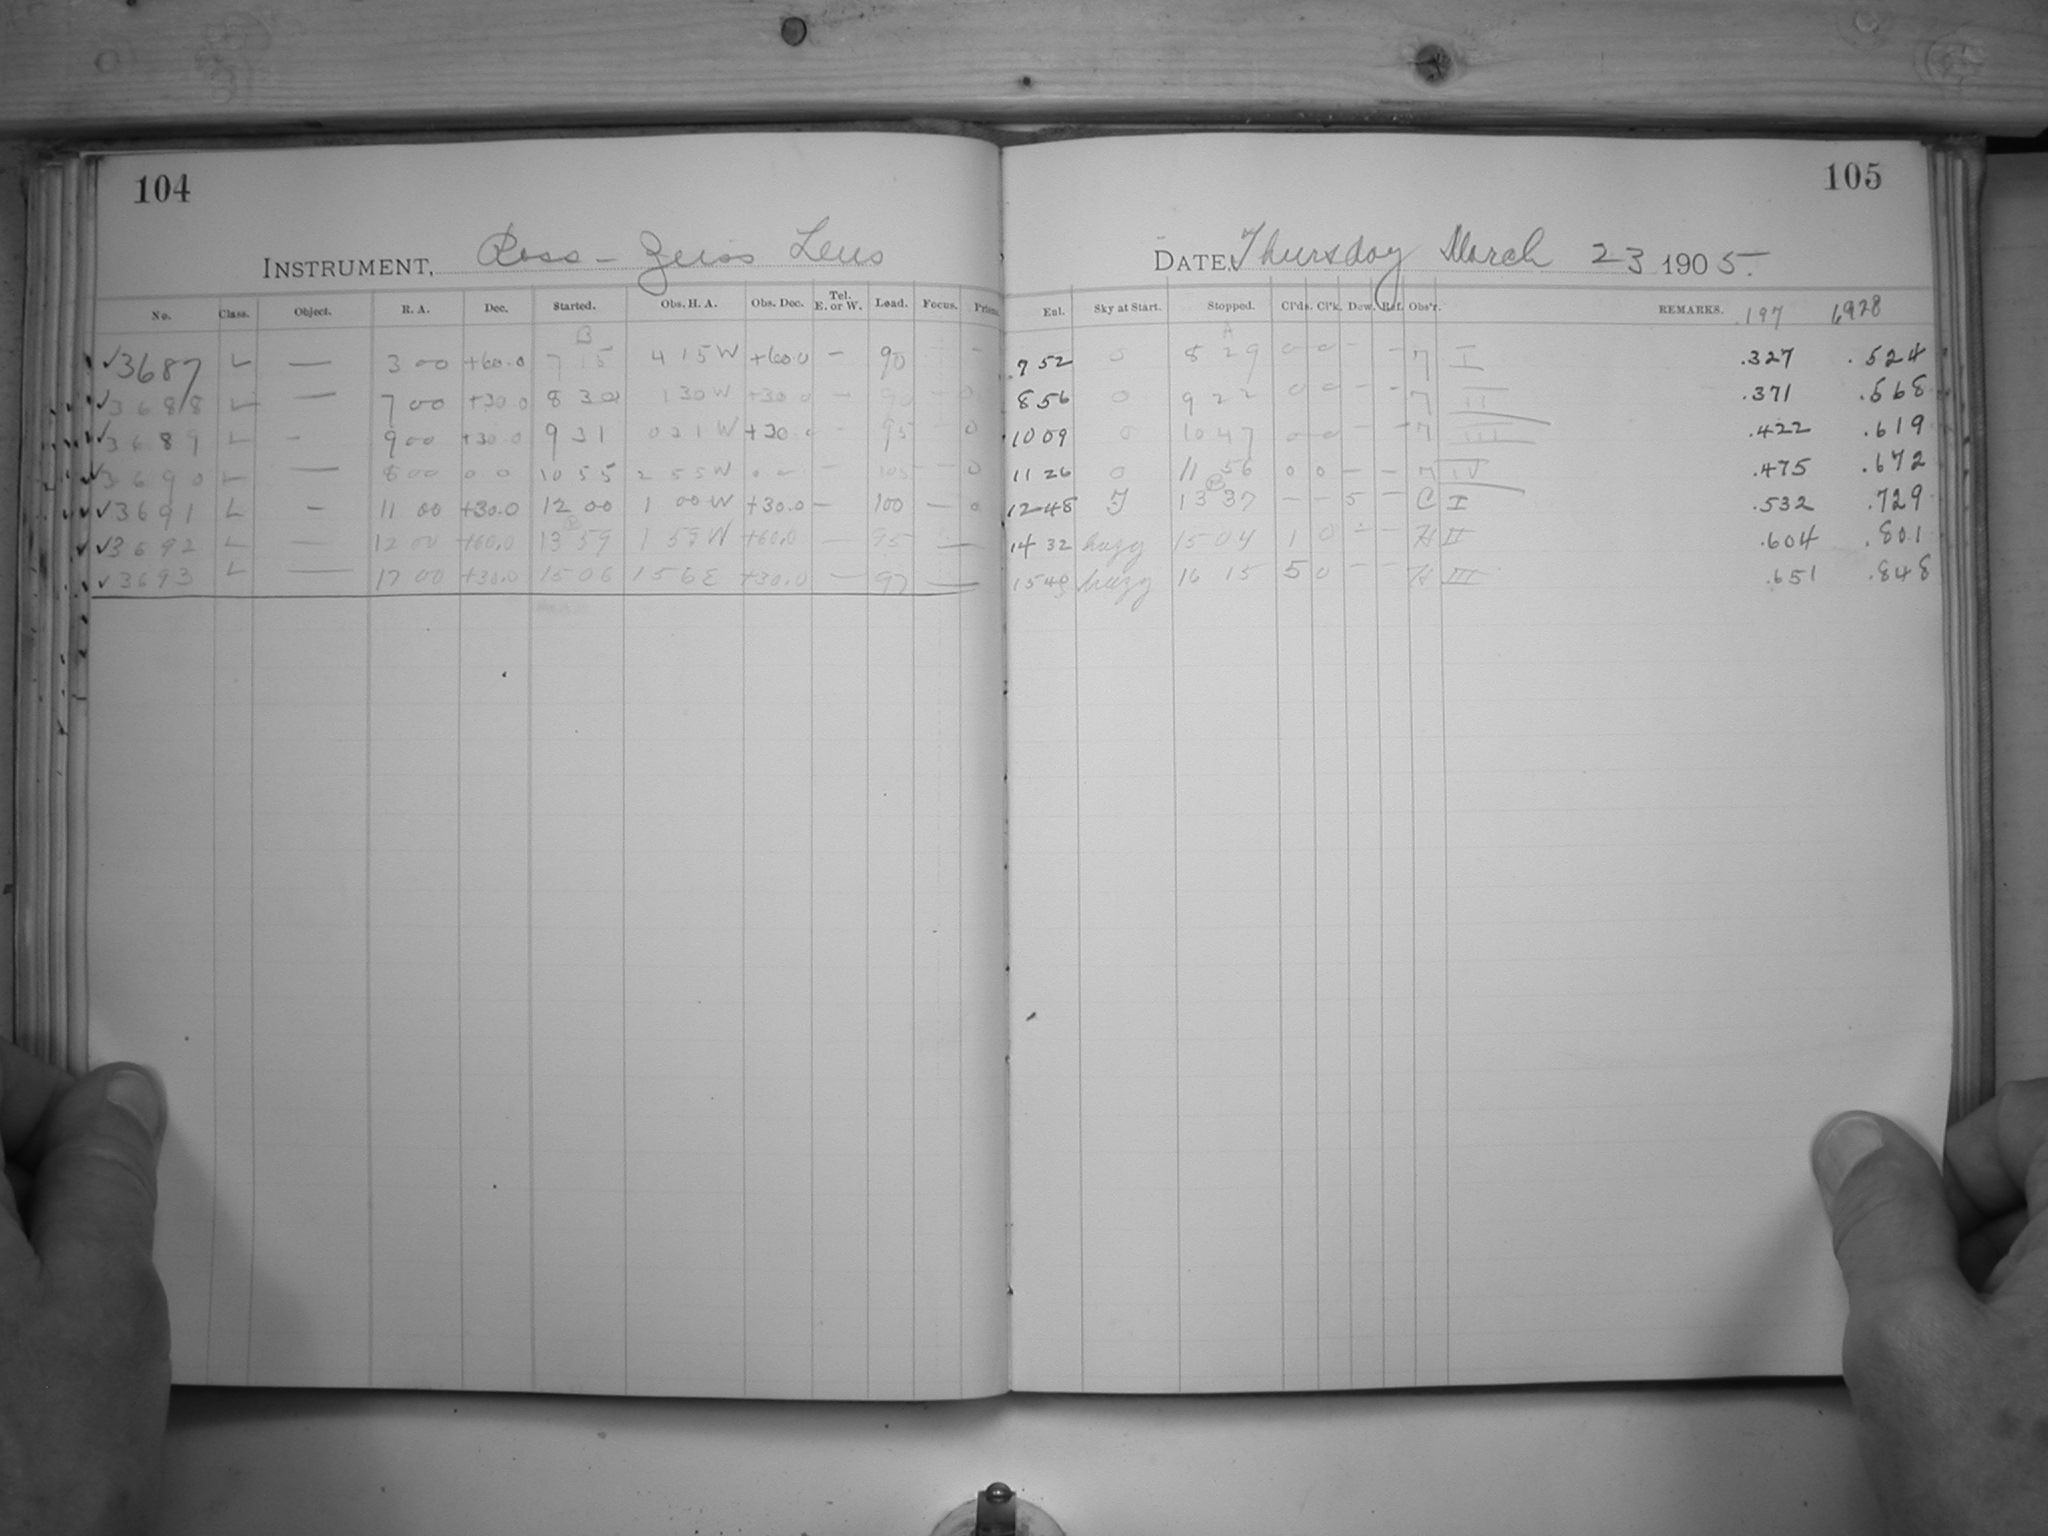 104
INSTRUMENT, Ross - Zeiss Lens
No. Class. Object. R. A. Dec. Started. Obs. H. A. Obs. Dec. Tel. E. or W. Load. Focus. Prism.
B
✓3687 L — 3 00 +60.0 7 15 4 15 W +60.0 — 90 — —
✓3688 L — 7 00 +30.0 8 30 1 30 W +30.0 — 90 — 0
✓3689 L — 9 00 +30.0 9 31 0 31 W +30.0 — 95 — 0
✓3690 L — 8 00 0 0 10 55 2 55 W 0.0 — 105 — 0
✓3691 L — 11 00 +30.0 12 00 1 00 W +30.0 — 100 — 0
✓3692 L — 12 00 +60.0 13 59 1 59 W +60.0 — 95 —
✓3693 L — 17 00 +30.0 15 06 1 56 E +30.0 — 97 —
105
DATE, Thursday March 23 1905.
Enl. Sky at Start. Stopped. Cl'ds. Cl'k. Dew. Ref. Obs'r. REMARKS. .197 6928
A
7 52 0 8 29 0 0 — — 7 I .327 .524
8 56 0 9 22 0 0 — — 7 II .371 .568
10 09 0 10 47 0 0 — — 7 III .422 .619
11 26 0 11 56 0 0 — — 7 IV .475 .672
12 48 13 37 — — 5 — C I .532 .729
14 32 hazy 15 04 1 0 — — H II .604 .801
15 40 hazy 16 15 5 0 — — H III .651 .848